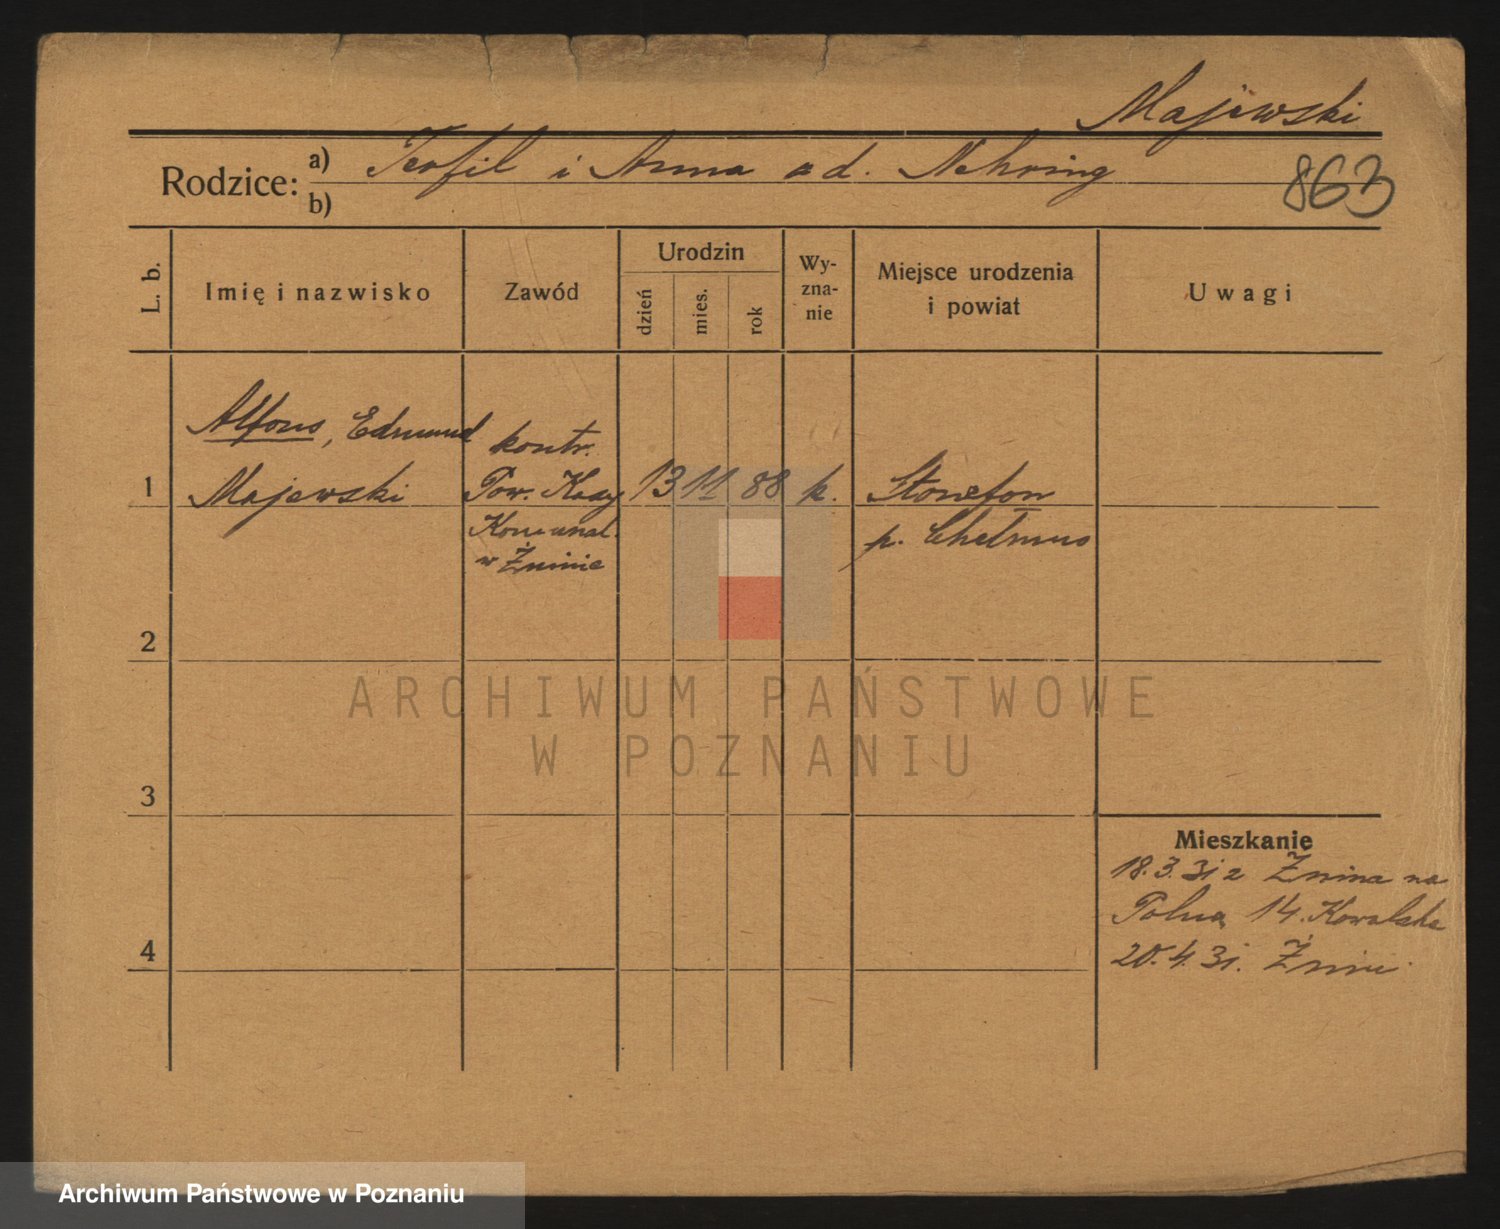 Majewski
Rodzice: a) Teofil i Anna od. Nehring
b)
863
L. b.
Imię i nazwisko
Zawód
Urodzin
dzień
mies.
rok
Wy-
zna-
nie
Miejsce urodzenia
i powiat
Uwagi
Alfons, Edmund
1 Majewski
kontr.
Pow. Kasy
Komunal.
w Żninie
13 11 88 k.
p. Chełmno
2
3
4
Mieszkanie
18.3.31 z Żnina na
Polna 14. Kowalska
20.4.31. Żnin
ARCHIWUM PAŃSTWOWE
W POZNANIU
Archiwum Państwowe w Poznaniu